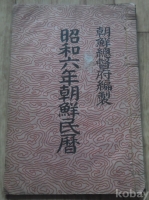 朝鮮總督府編製
昭和六年朝鮮民曆